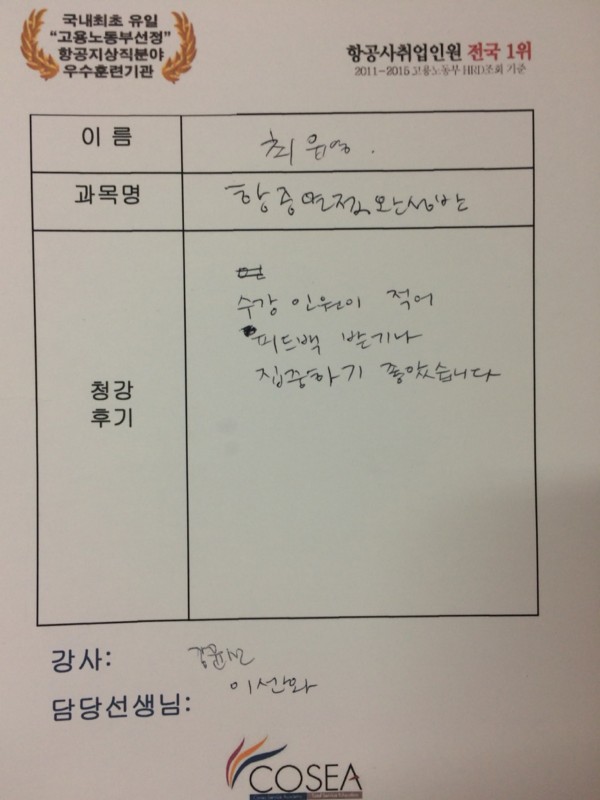 국내최초 유일
“고용노동부선정”
항공지상직분야
우수훈련기관
항공사취업인원 전국 1위
2011-2015 고용노동부 HRD조회 기준
이 름
최 윤영.
과목명
항 중 면접 완성반
청강
후기
수강 인원이 적어
피드백 받기나
집중하기 좋았습니다
강사:
담당선생님:
이선화
COSEA